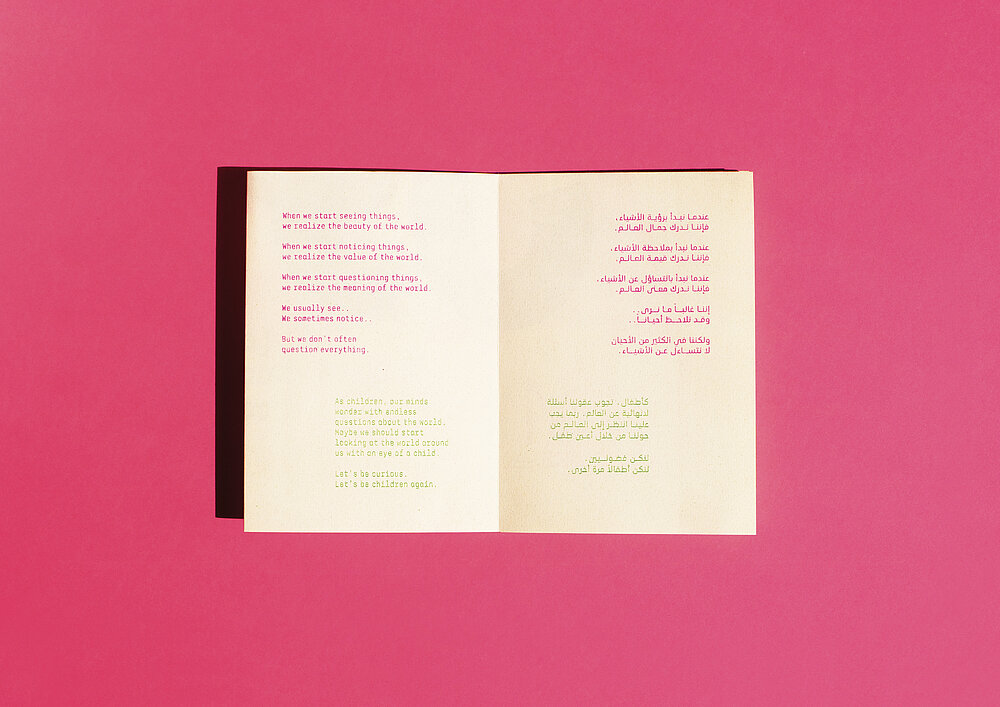 When we start seeing things,
we realize the beauty of the world.
When we start noticing things,
we realize the value of the world.
When we start questioning things,
we realize the meaning of the world.
We usually see..
We sometimes notice..
But we don't often
question everything.
As children, our minds
wonder with endless
questions about the world.
Maybe we should start
looking at the world around
us with an eye of a child.
Let's be curious.
Let's be children again.
عندما نبدأ برؤية الأشياء،
فإننا ندرك جمال العالم.
عندما نبدأ بملاحظة الأشياء،
فإننا ندرك قيمة العالم.
عندما نبدأ بالتساؤل عن الأشياء،
فإننا ندرك معنى العالم.
إننا غالباً ما نرى..
وقد نلاحظ أحياناً..
ولكننا في الكثير من الأحيان
لا نتساءل عن الأشياء.
كأطفال، تجوب عقولنا أسئلة
لانهائية عن العالم. ربما يجب
علينا النظر إلى العالم من
حولنا من خلال أعين طفل.
لنكن فضوليين.
لنكن أطفالاً مرة أخرى.